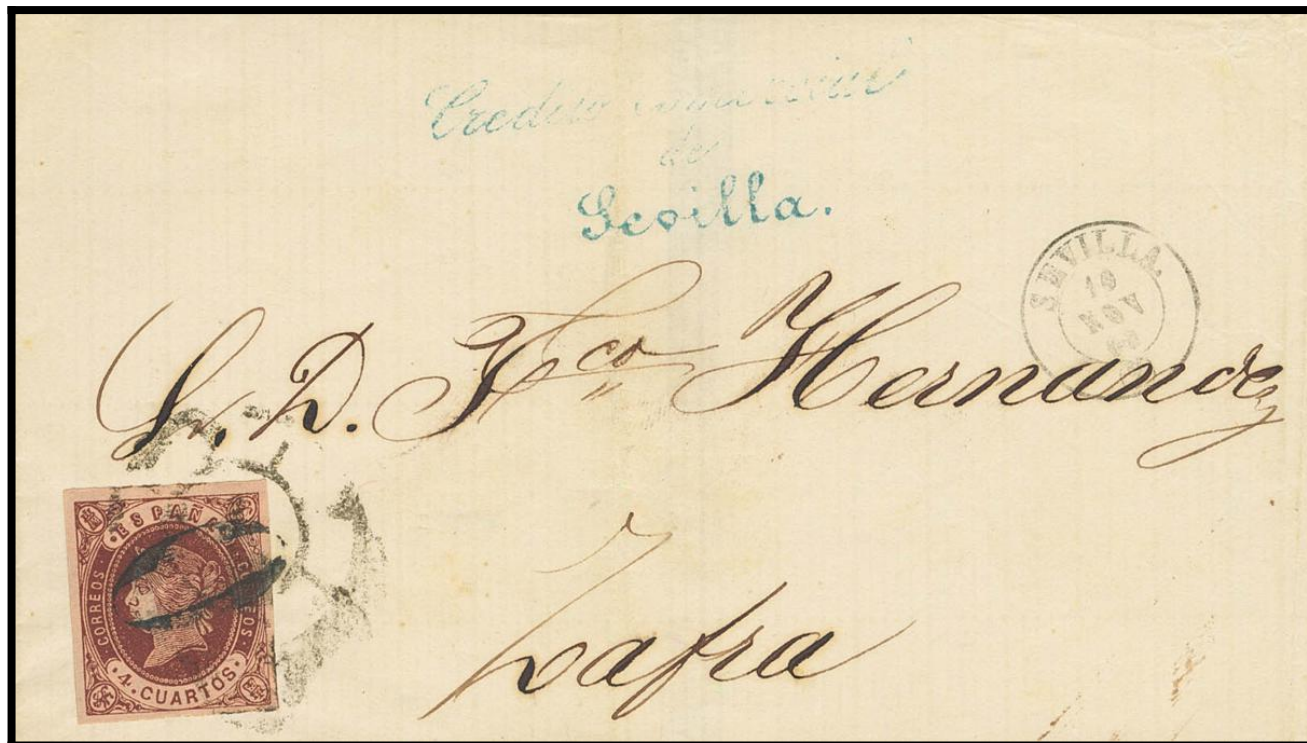 Credito Comercial
de
Sevilla.
SEVILLA.
10
NOV
Sr. D. Fco Hernandez
Zafra
ESPAÑA
CORREOS
CORREOS
4. CUARTOS